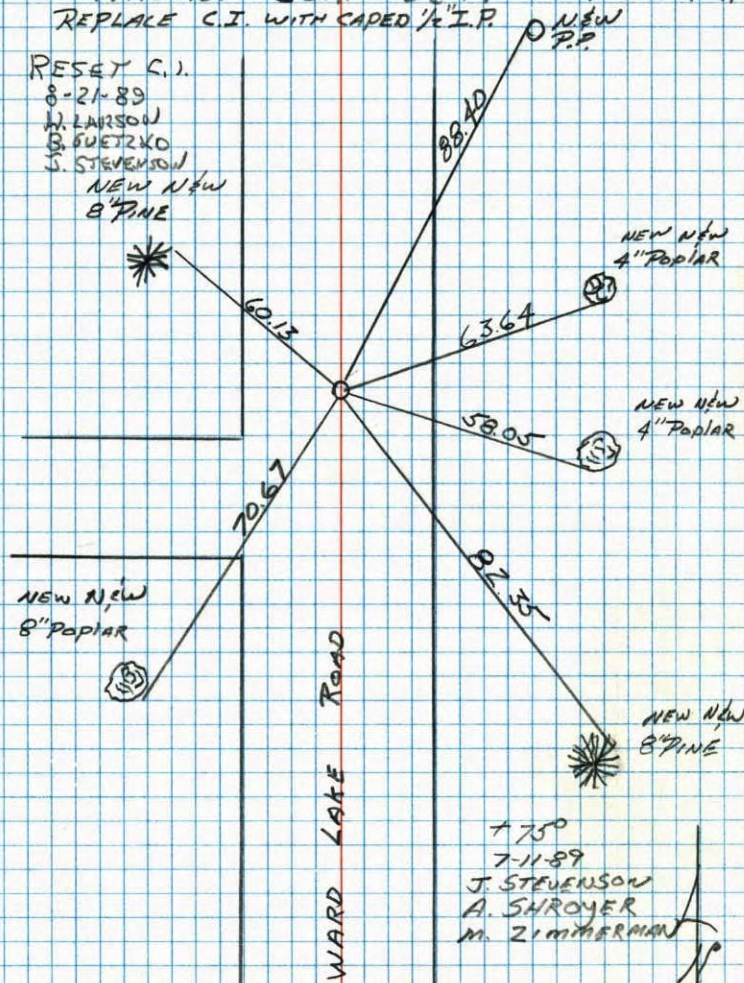 REPLACE C.I. WITH CAPED 1/2" I.P.
N&W
P.P.
RESET C.I.
8-21-89
W. LARSON
B. GUETZKO
J. STEVENSON
NEW N&W
8" PINE
88.40
NEW N&W
4" Poplar
60.13
63.64
NEW N&W
4" Poplar
58.05
70.67
82.35
NEW N&W
8" Poplar
NEW N&W
8" PINE
WARD LAKE ROAD
+75°
7-11-89
J. STEVENSON
A. SHROYER
M. ZIMMERMAN